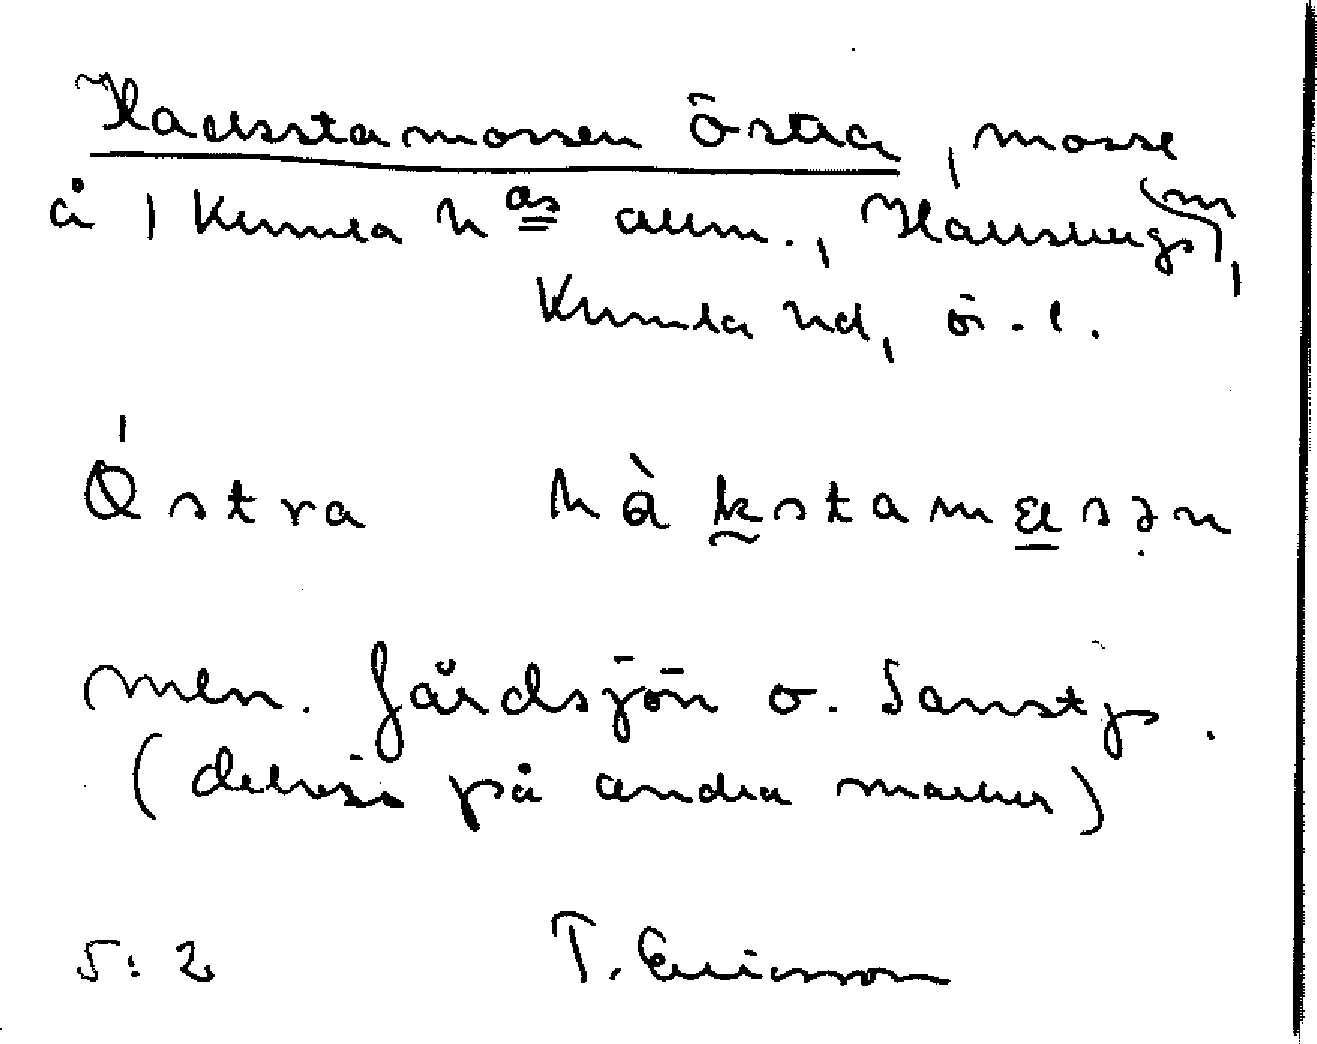 Hacksstamossen Östra, mosse
å Kumla h as allm., Hallsbergs m,
Kumla hd, ö. l.
Östra hàkstamɑsən
men. Gårdsjön o. Sanst
(delvis på andra marker)
5:2 T. Ericsson